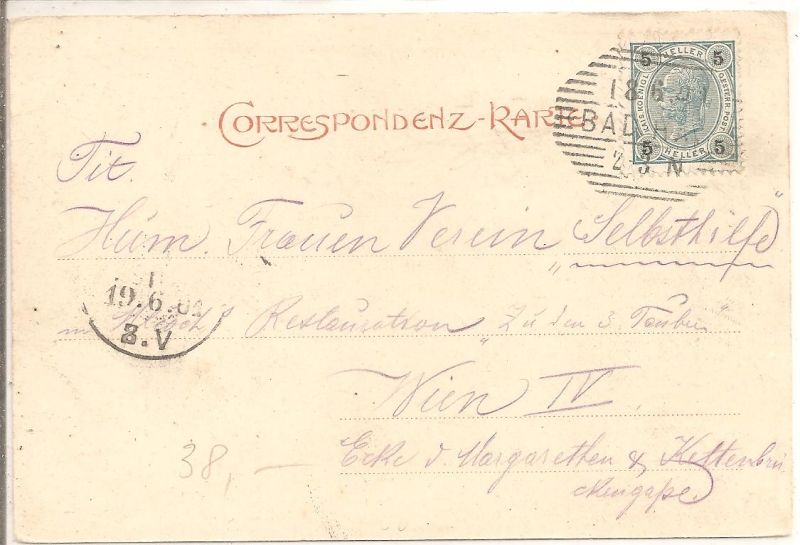 5 HELLER 5
KAIS. KOENIGL. OESTERR. POST.
5 HELLER 5
18.6.
BADEN
2-3 N
CORRESPONDENZ-KARTE
Tit.
Hum. Frauen Verein „Selbsthilfe"
1
19.6.02
8.V
Restauration „Zu den 3 Tauben"
Wien IV
Ecke d Margarethen & Kettenbrü
ckengaße.
38,—